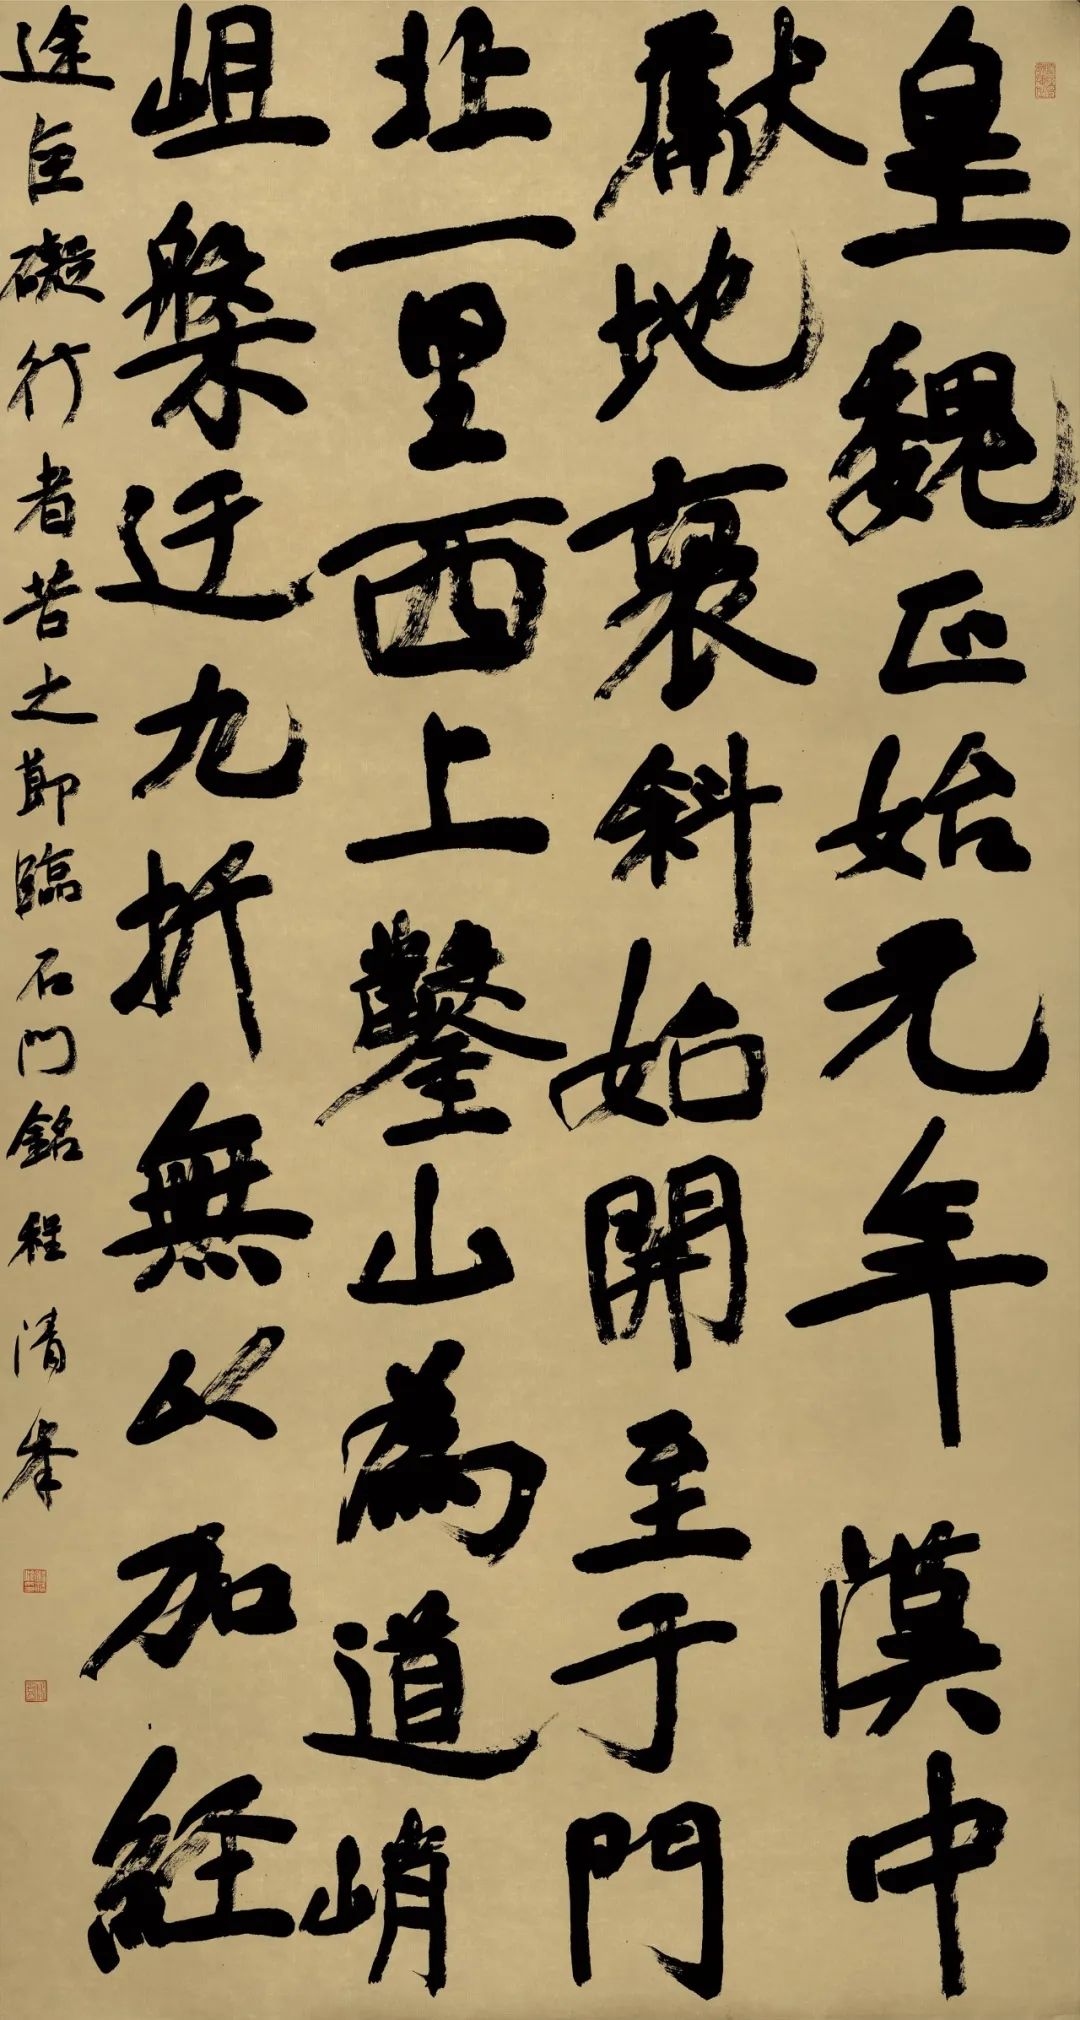 皇魏正始元年漢中
獻地褒斜始開至于門
北一里西上鑿山為道峭
岨槃迂九折無以加經
途巨礙行者苦之節臨石門銘程清峯